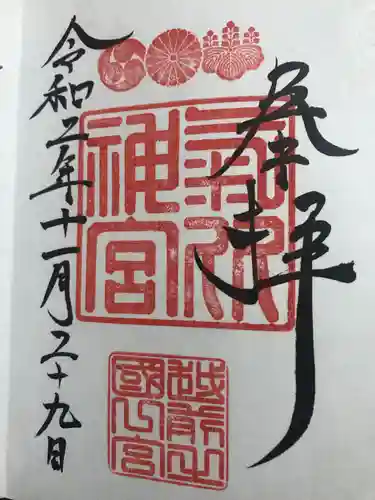 奉拝
氣比神宮
越前之國一宮
令和二年十一月二十九日